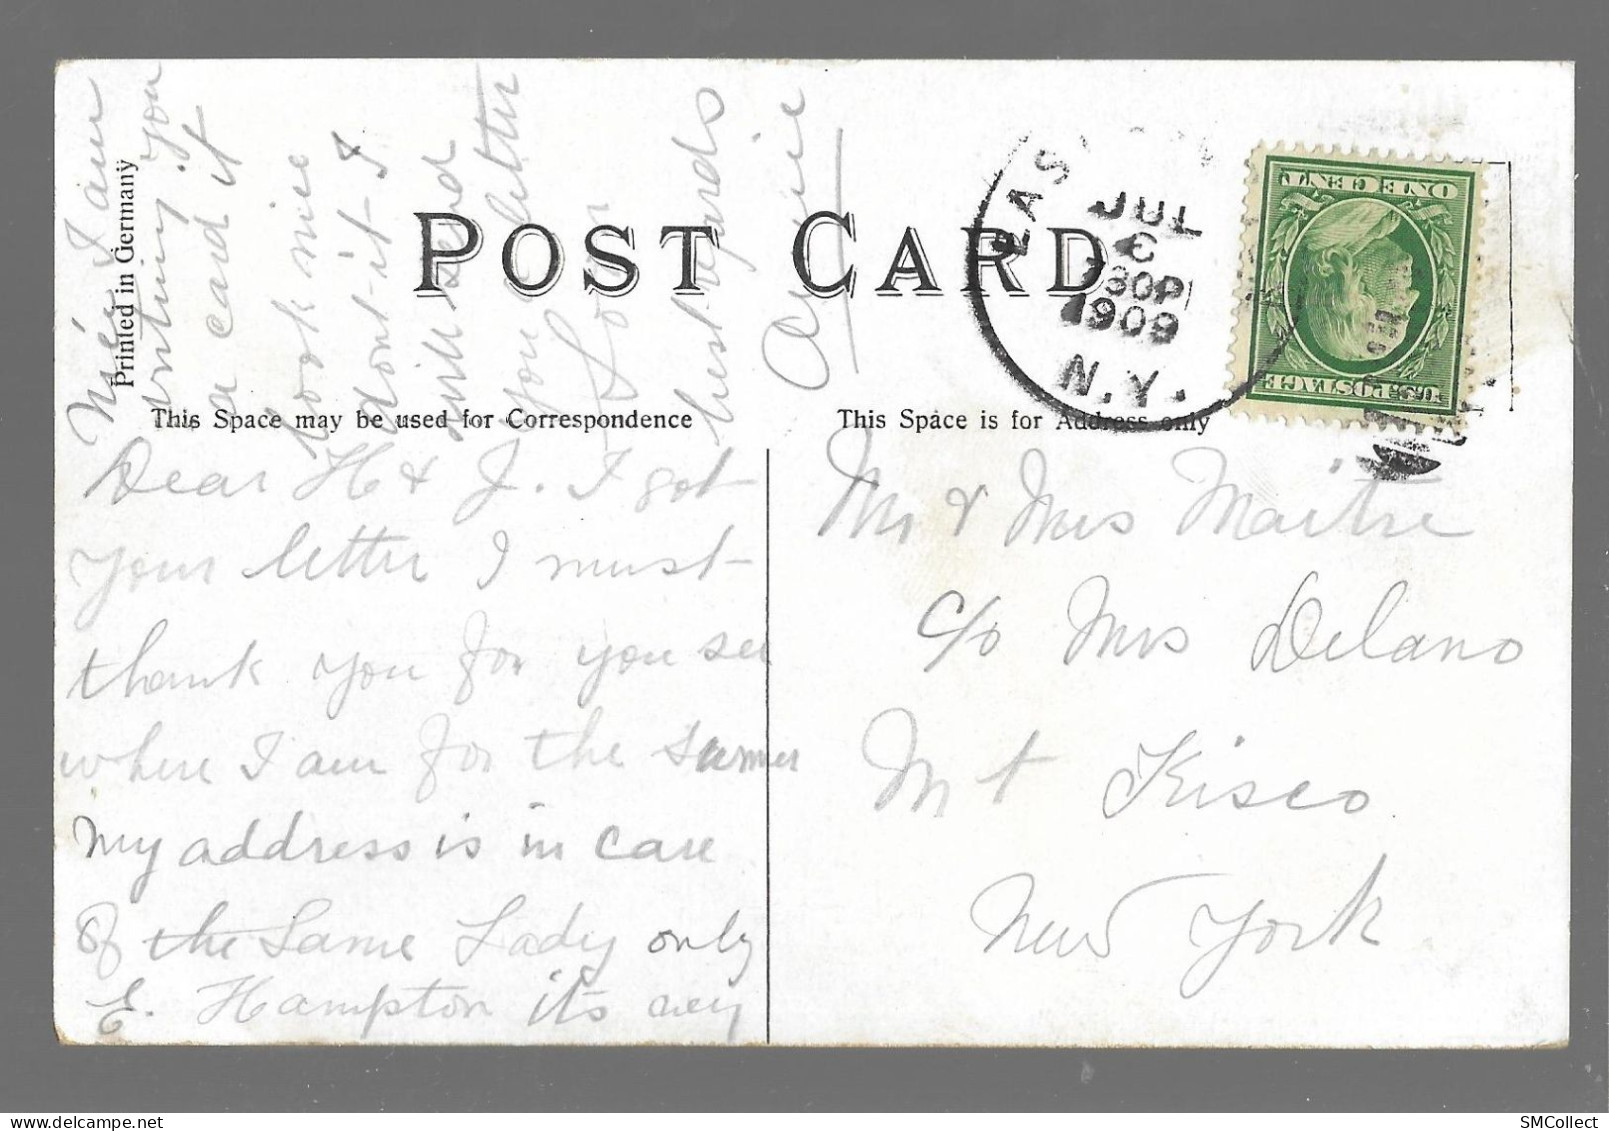 POST CARD
Printed in Germany
This Space may be used for Correspondence
This Space is for Address only
EAS
JUL
6
730P
1909
N.Y.
ONE CENT
U.S. POSTAGE
Dear H & J. I got
your letter I must
thank you for you see
where I am for the summer
My address is in care
of the Same Lady only
E. Hampton its very
nice I am
writing you
a card it
look nice
dont it I
will send
you letter
soon
best regards
Annie
Mr & Mrs Maitre
c/o Mrs Delano
Mt Kisco
New York
SMCollect